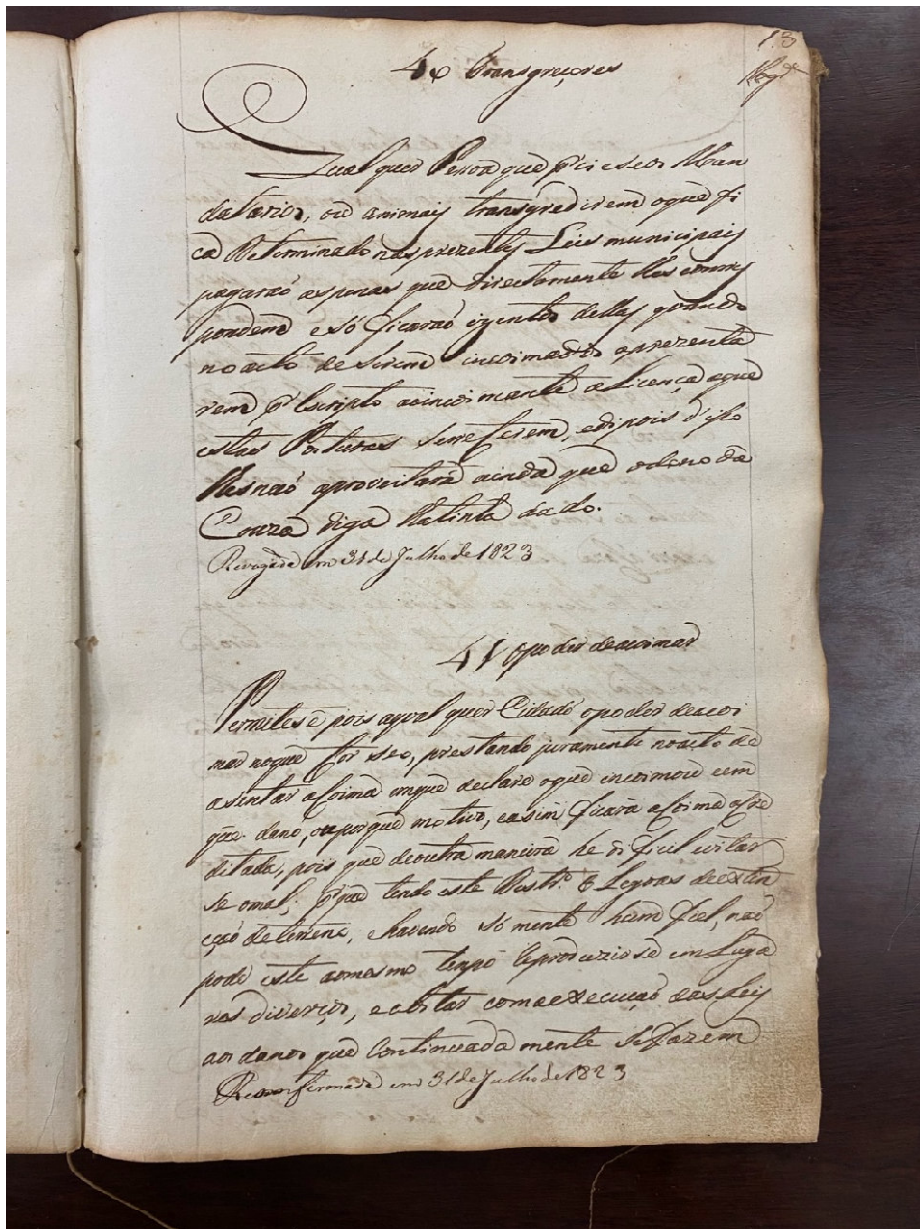 13
40 transgreçores
Qualquer Pessoa que p.r si e seos Man
datarios, ou animais transgredirem o que fi
ca Determinado nas prezentes Leis municipais
pagaraõ as penas que directamente lhes corres
pondem e só ficaraõ izentos dellas quando
no acto de serem encoimados aprezenta
rem p.r Escripto ao incoimante a Licença aque
estas Posturas se referem, e depois disso
lhes naõ aproveitará ainda que o dono da
Couza diga lha tinha dado.
Revogada em 31 de Julho de 1823
41 o poder de acoimar
Permitese pois aqual quer Cidadaõ o poder de acoi
mar no que for seo, prestando juramento no acto de
asentar a Coima em que declare o que incoimou e em
que dano, ou porque motivo, e asim ficará a Coima acre
ditada, pois que de outra maneira he deficil evitar
se o mal; p.r que tendo este Destr.o 6 Legoas de exten
çaõ de terreno, e havendo só mente hum fiel, naõ
pode este ao mesmo tempo reproduzirse em Luga
res diverços, e obstar com a execuçaõ das Leis
aos danos que continuada mente se fazem
Reconfermada em 31 de Julho de 1823